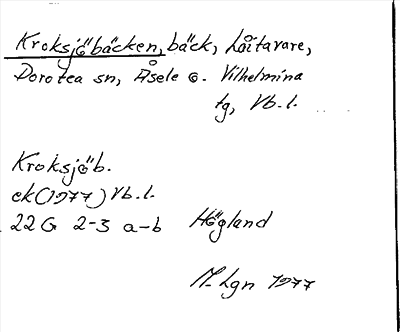 Kroksjöbäcken, bäck, Låitavare,
Dorotea sn, Åsele o. Vilhelmina
tg, Vb.l.
Kroksjöb.
ek (1977) Vb.l.
22 G 2-3 a-b Högland
M-Lgn 1977